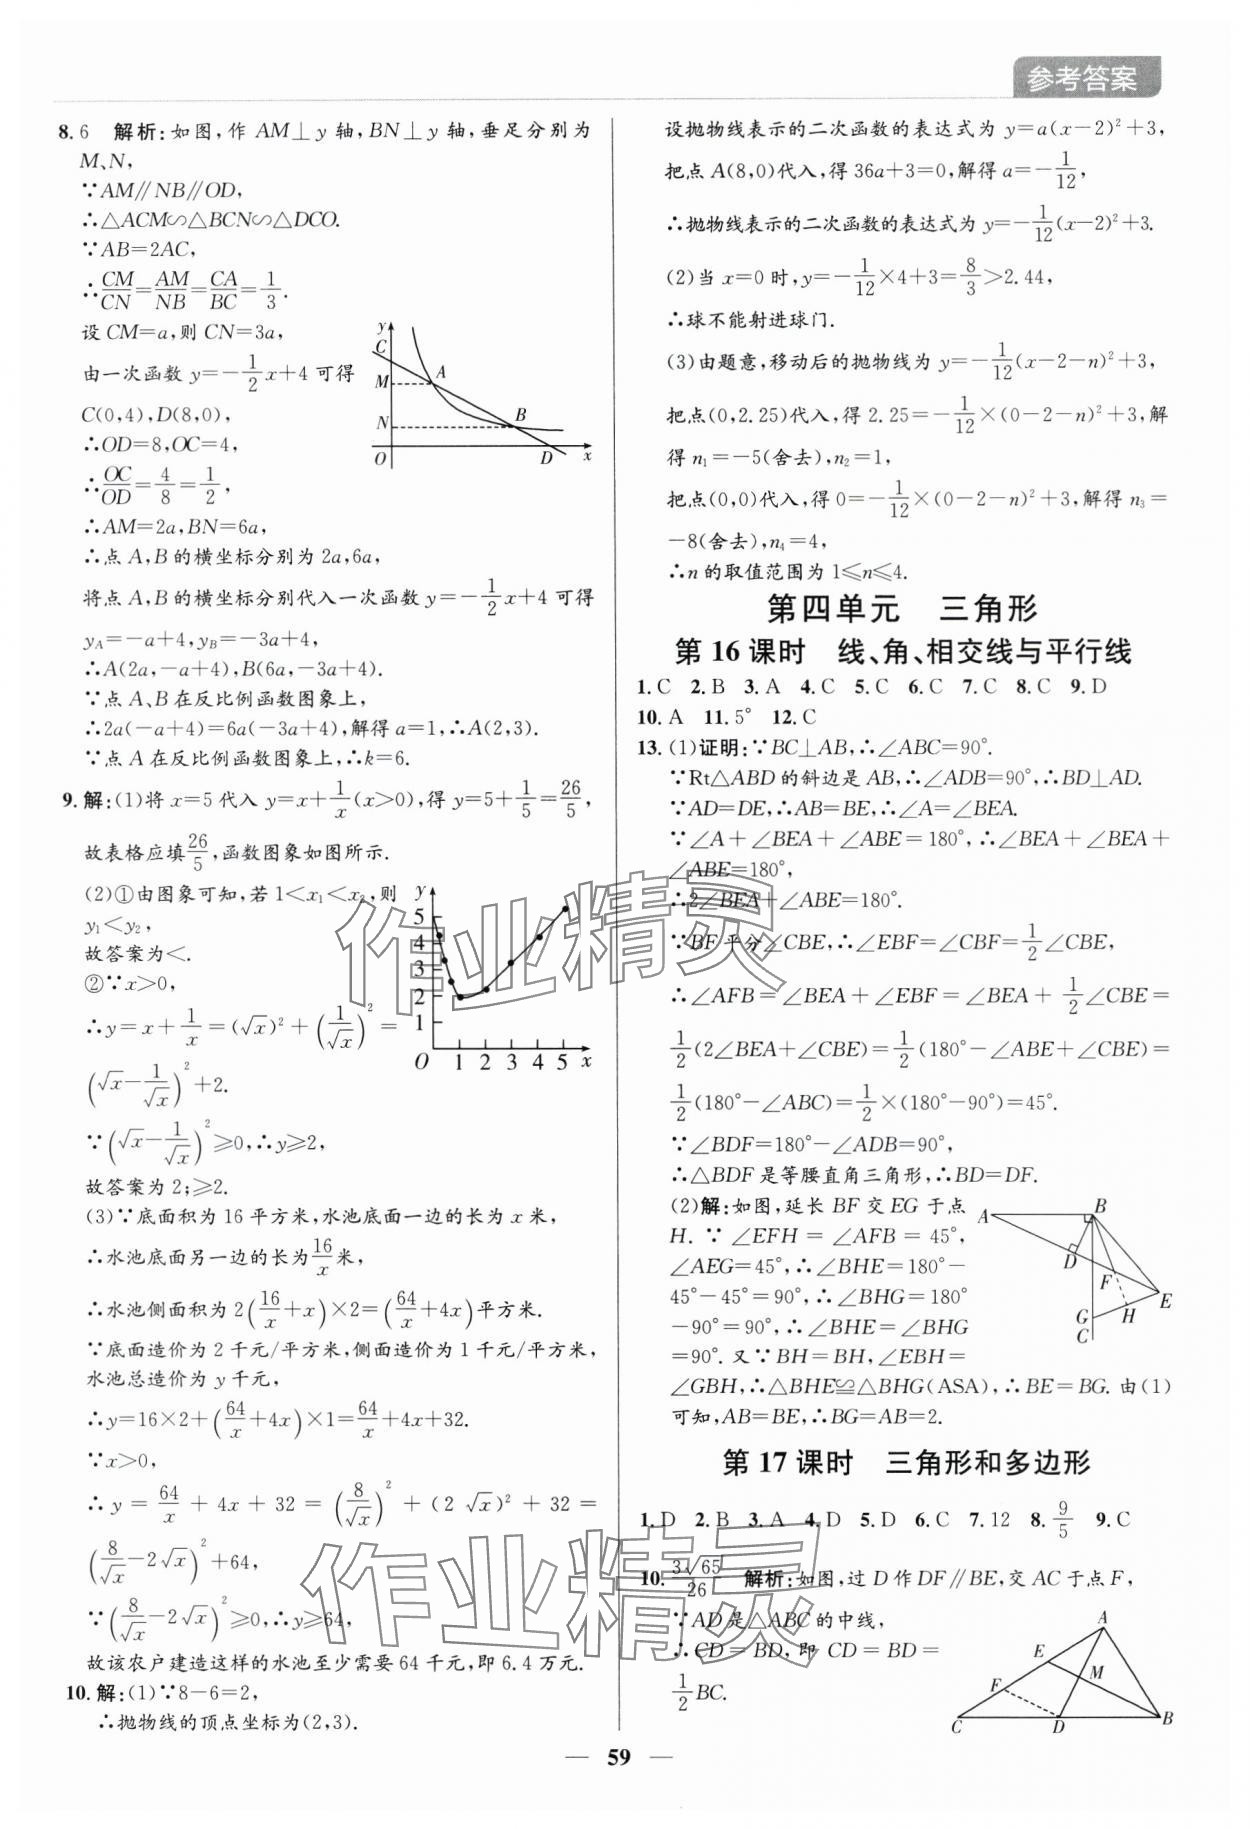 参考答案
8. 6　解析:如图,作 AM⊥y 轴,BN⊥y 轴,垂足分别为
M、N,
∵AM∥NB∥OD,
∴△ACM∽△BCN∽△DCO.
∵AB=2AC,
∴CM/CN=AM/NB=CA/BC=1/3.
设 CM=a,则 CN=3a,
由一次函数 y=-1/2x+4 可得
C(0,4),D(8,0),
∴OD=8,OC=4,
∴OC/OD=4/8=1/2,
∴AM=2a,BN=6a,
∴点 A,B 的横坐标分别为 2a,6a,
将点 A,B 的横坐标分别代入一次函数 y=-1/2x+4 可得
y_A=-a+4,y_B=-3a+4,
∴A(2a,-a+4),B(6a,-3a+4).
∵点 A、B 在反比例函数图象上,
∴2a(-a+4)=6a(-3a+4),解得 a=1,∴A(2,3).
∵点 A 在反比例函数图象上,∴k=6.
y
C
M
A
N
B
O
D
x
9. 解:(1)将 x=5 代入 y=x+1/x(x>0),得 y=5+1/5=26/5,
故表格应填26/5,函数图象如图所示.
(2)①由图象可知,若 1<x₁<x₂,则
y₁<y₂,
故答案为<.
②∵x>0,
∴y=x+1/x=(√x)²+(1/√x)²=
(√x-1/√x)²+2.
∵(√x-1/√x)²≥0,∴y≥2,
故答案为 2;≥2.
y
5
4
3
2
1
O 1 2 3 4 5 x
(3)∵底面积为 16 平方米,水池底面一边的长为 x 米,
∴水池底面另一边的长为16/x米,
∴水池侧面积为 2(16/x+x)×2=(64/x+4x)平方米.
∵底面造价为 2 千元/平方米,侧面造价为 1 千元/平方米,
水池总造价为 y 千元,
∴y=16×2+(64/x+4x)×1=64/x+4x+32.
∵x>0,
∴y=64/x+4x+32=(8/√x)²+(2√x)²+32=
(8/√x-2√x)²+64,
∵(8/√x-2√x)²≥0,∴y≥64,
故该农户建造这样的水池至少需要 64 千元,即 6.4 万元.
10. 解:(1)∵8-6=2,
∴抛物线的顶点坐标为(2,3).
设抛物线表示的二次函数的表达式为 y=a(x-2)²+3,
把点 A(8,0)代入,得 36a+3=0,解得 a=-1/12,
∴抛物线表示的二次函数的表达式为 y=-1/12(x-2)²+3.
(2)当 x=0 时,y=-1/12×4+3=8/3>2.44,
∴球不能射进球门.
(3)由题意,移动后的抛物线为 y=-1/12(x-2-n)²+3,
把点(0,2.25)代入,得 2.25=-1/12×(0-2-n)²+3,解
得 n₁=-5(舍去),n₂=1,
把点(0,0)代入,得 0=-1/12×(0-2-n)²+3,解得 n₃=
-8(舍去),n₄=4,
∴n 的取值范围为 1≤n≤4.
第四单元　三角形
第 16 课时　线、角、相交线与平行线
1. C 2. B 3. A 4. C 5. C 6. C 7. C 8. C 9. D
10. A 11. 5° 12. C
13. (1)证明:∵BC⊥AB,∴∠ABC=90°.
∵Rt△ABD 的斜边是 AB,∴∠ADB=90°,∴BD⊥AD.
∵AD=DE,∴AB=BE,∴∠A=∠BEA.
∵∠A+∠BEA+∠ABE=180°,∴∠BEA+∠BEA+
∠ABE=180°,
∴2∠BEA+∠ABE=180°.
∵BF 平分∠CBE,∴∠EBF=∠CBF=1/2∠CBE,
∴∠AFB=∠BEA+∠EBF=∠BEA+1/2∠CBE=
1/2(2∠BEA+∠CBE)=1/2(180°-∠ABE+∠CBE)=
1/2(180°-∠ABC)=1/2×(180°-90°)=45°.
∵∠BDF=180°-∠ADB=90°,
∴△BDF 是等腰直角三角形,∴BD=DF.
(2)解:如图,延长 BF 交 EG 于点
H. ∵∠EFH=∠AFB=45°,
∠AEG=45°,∴∠BHE=180°-
45°-45°=90°,∴∠BHG=180°
-90°=90°,∴∠BHE=∠BHG
=90°. 又∵BH=BH,∠EBH=
∠GBH,∴△BHE≌△BHG(ASA),∴BE=BG. 由(1)
可知,AB=BE,∴BG=AB=2.
A
B
D
F
E
G
H
C
第 17 课时　三角形和多边形
1. D 2. B 3. A 4. D 5. D 6. C 7. 12 8. 9/5 9. C
10. 3√65/26　解析:如图,过 D 作 DF∥BE,交 AC 于点 F,
∵AD 是△ABC 的中线,
∴CD=BD,即 CD=BD=
1/2BC.
A
E
M
F
C
D
B
作业精灵
作业精灵
— 59 —